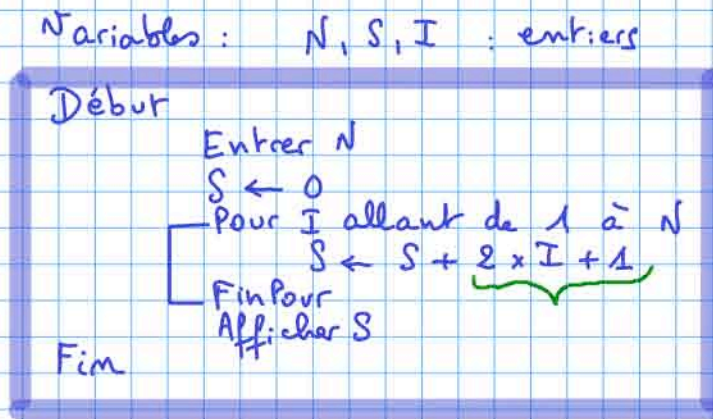 Variables : N, S, I : entiers
Début
Entrer N
S ← 0
Pour I allant de 1 à N
S ← S + 2 x I + 1
FinPour
Afficher S
Fin